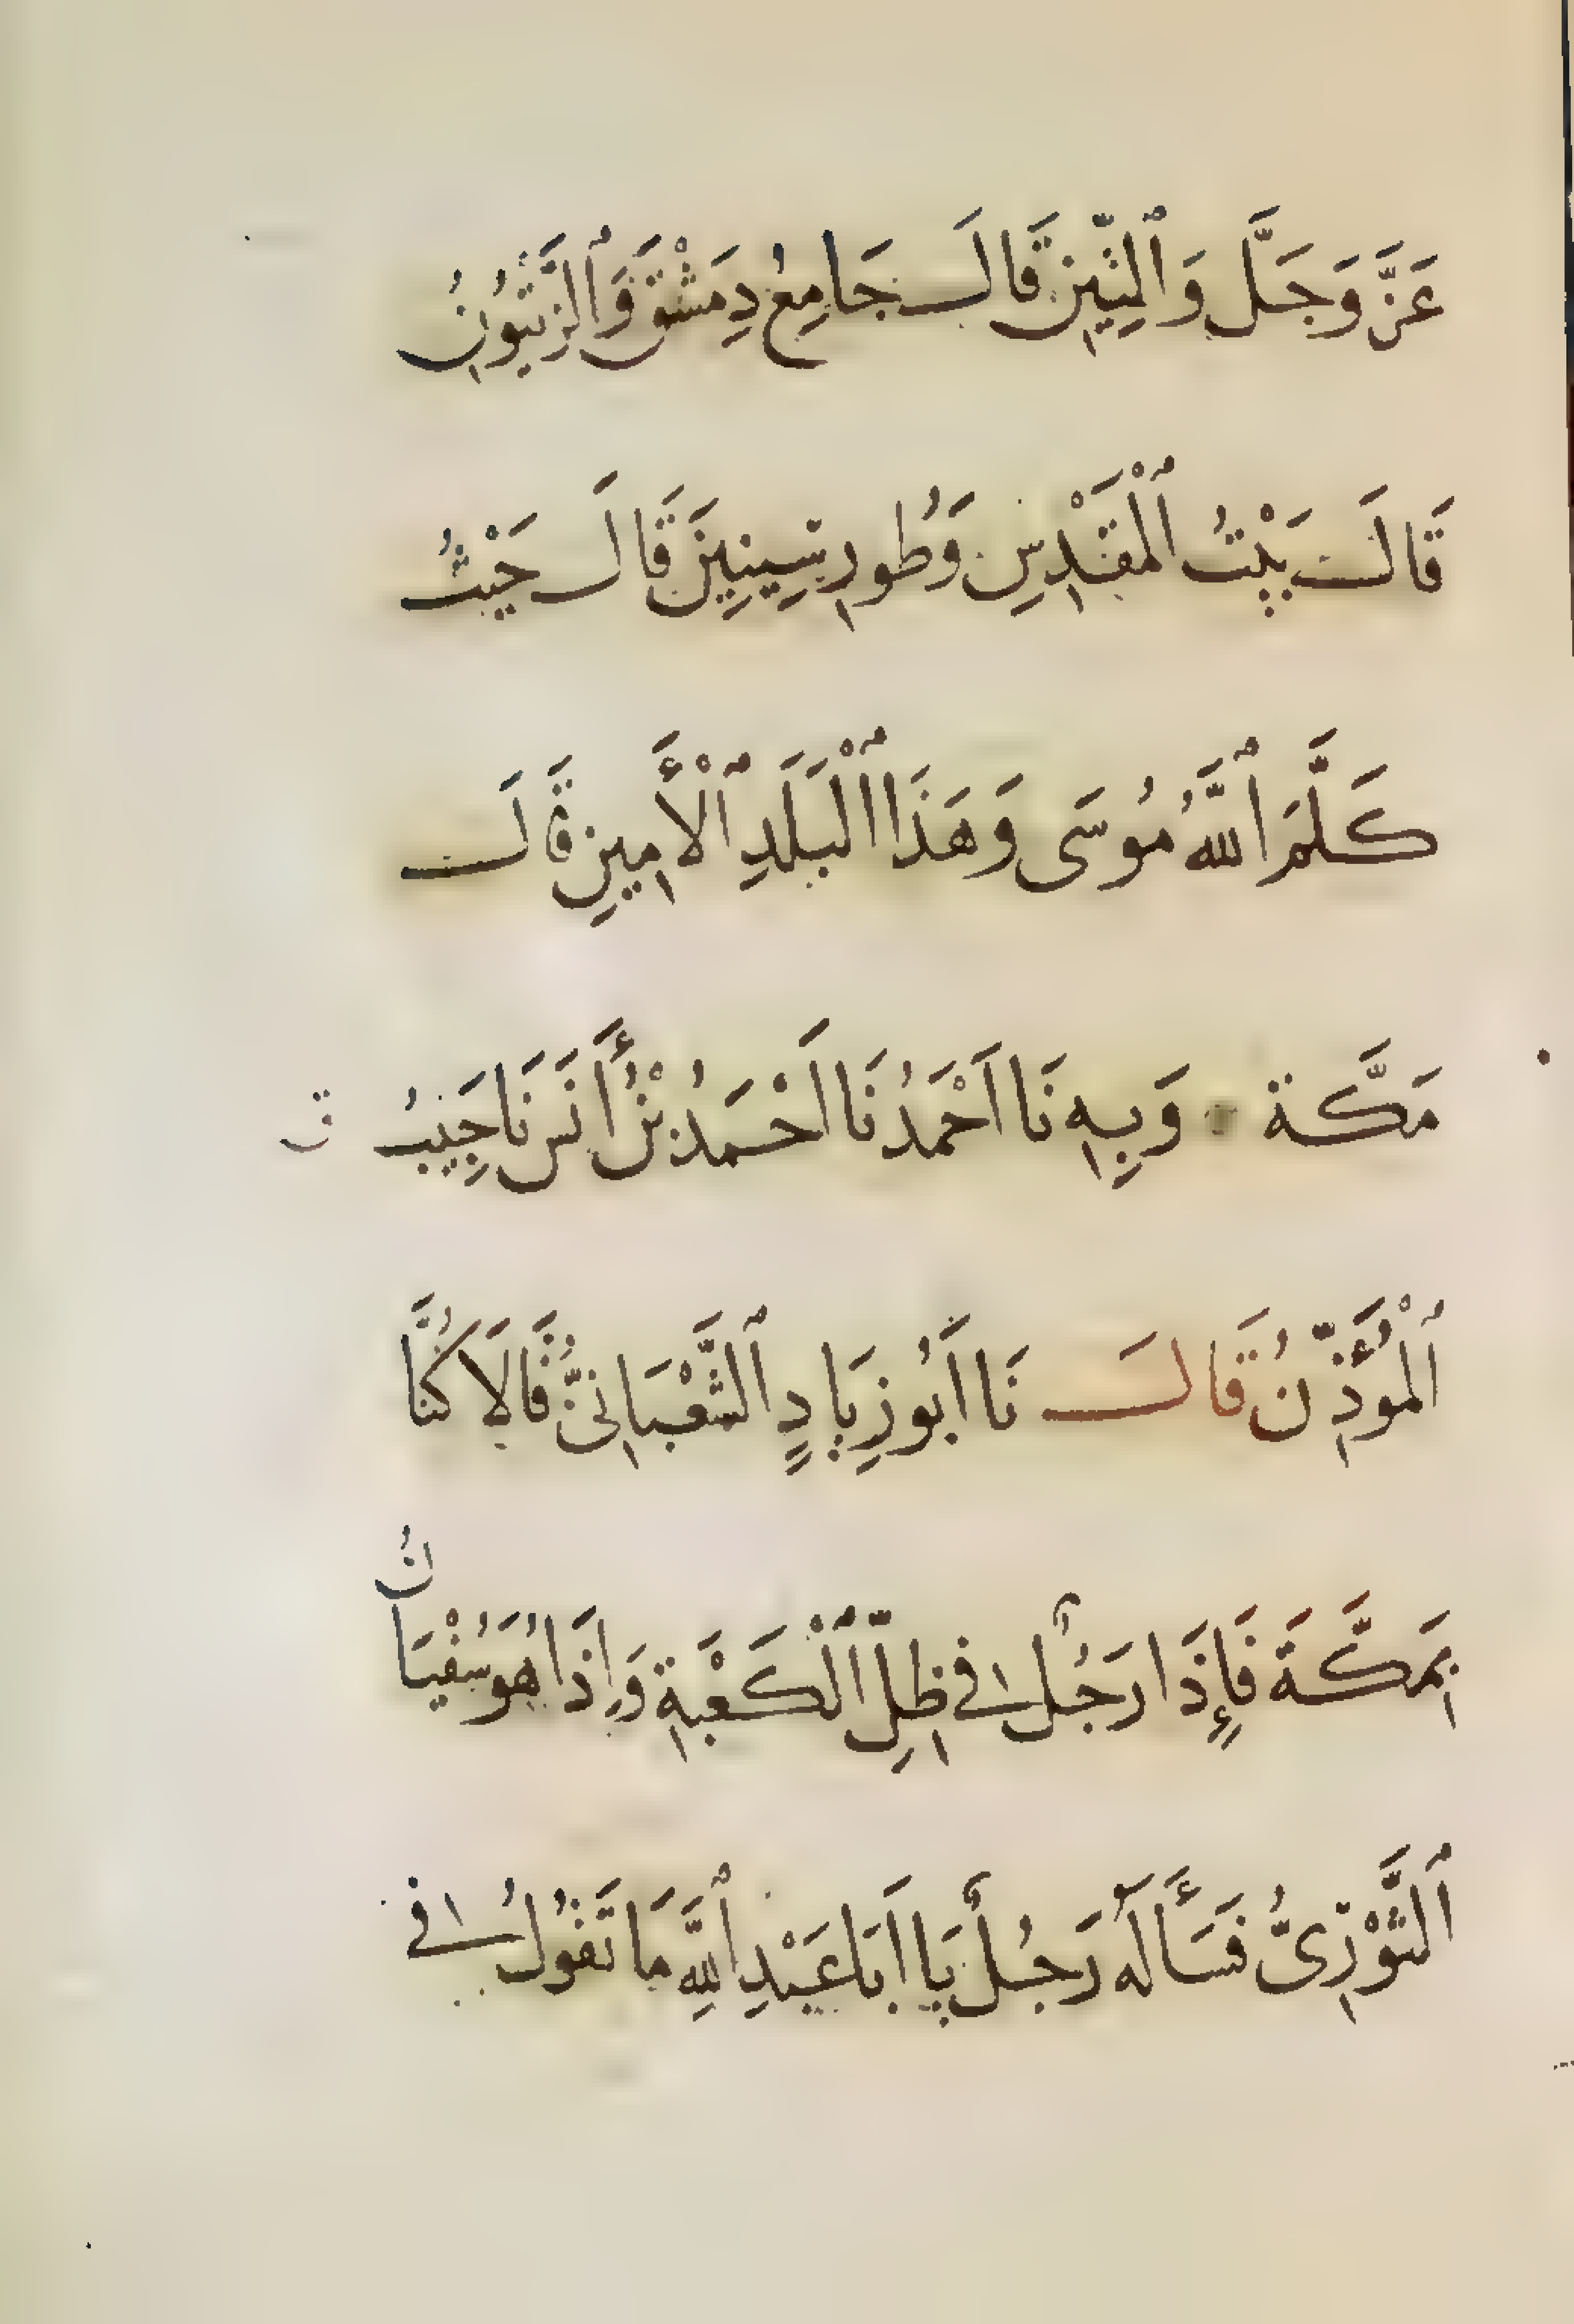 عَزَّ وَجَلَّ وَٱلتِّينِ قَالَ جَامِعُ دِمَشْقَ وَٱلزَّيْتُونِ
قَالَ بَيْتُ ٱلْمَقْدِسِ وَطُورِ سِينِينَ قَالَ حَيْثُ
كَلَّمَ ٱللَّهُ مُوسَى وَهَذَا ٱلْبَلَدِ ٱلْأَمِينِ قَالَ
مَكَّة وَبِهِ نَا اَحْمَدُ نَا اَحْمَدُ بْنُ أَنَسٍ نَا حَبِيبُ
ٱلْمُؤَذِّنُ قَالَ نَا اَبُو زِيَادٍ ٱلشَّعْبَانِىُّ قَالَا كُنَّا
بِمَكَّةَ فَإِذَا رَجُلٌ فِى ظِلِّ ٱلْكَعْبَةِ وَإِذَا هُوَ سُفْيَانُ
ٱلثَّوْرِىُّ فَسَأَلَهُ رَجُلٌ يَا اَبَا عَبْدِ ٱللَّهِ مَا تَقُولُ فِى